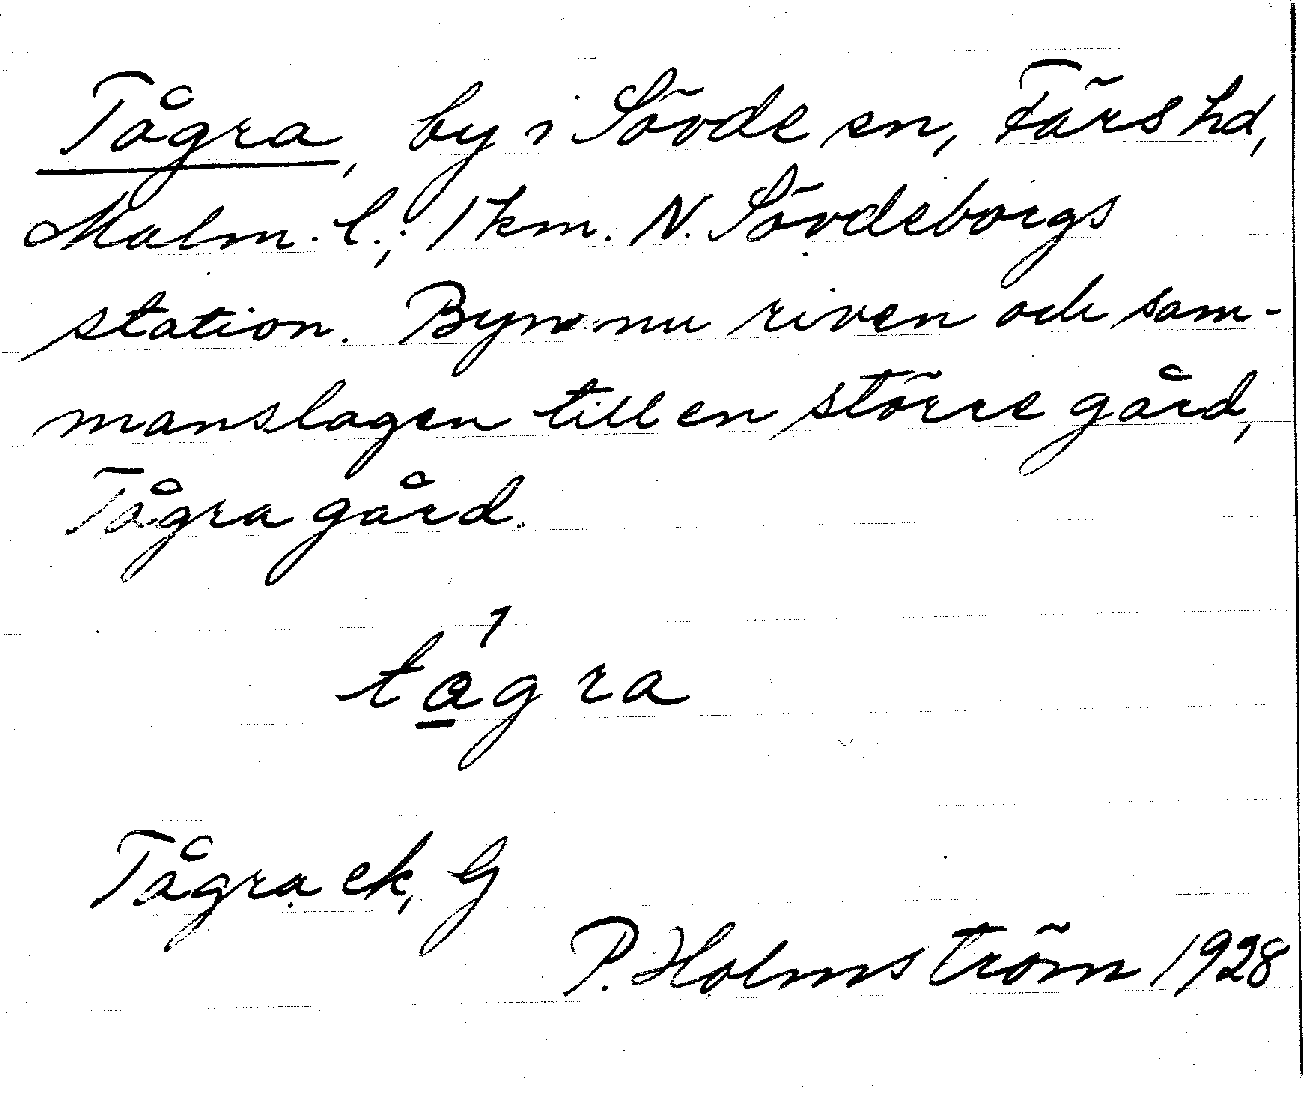 Tågra, by i Sövde sn, Färs hd,
Malm. l.; 1 km. N. Sövdeborgs
station. Byn nu riven och sam-
manslagen till en större gård,
Tågra gård.
tågra
Tågra ek, G
P. Holmström 1928